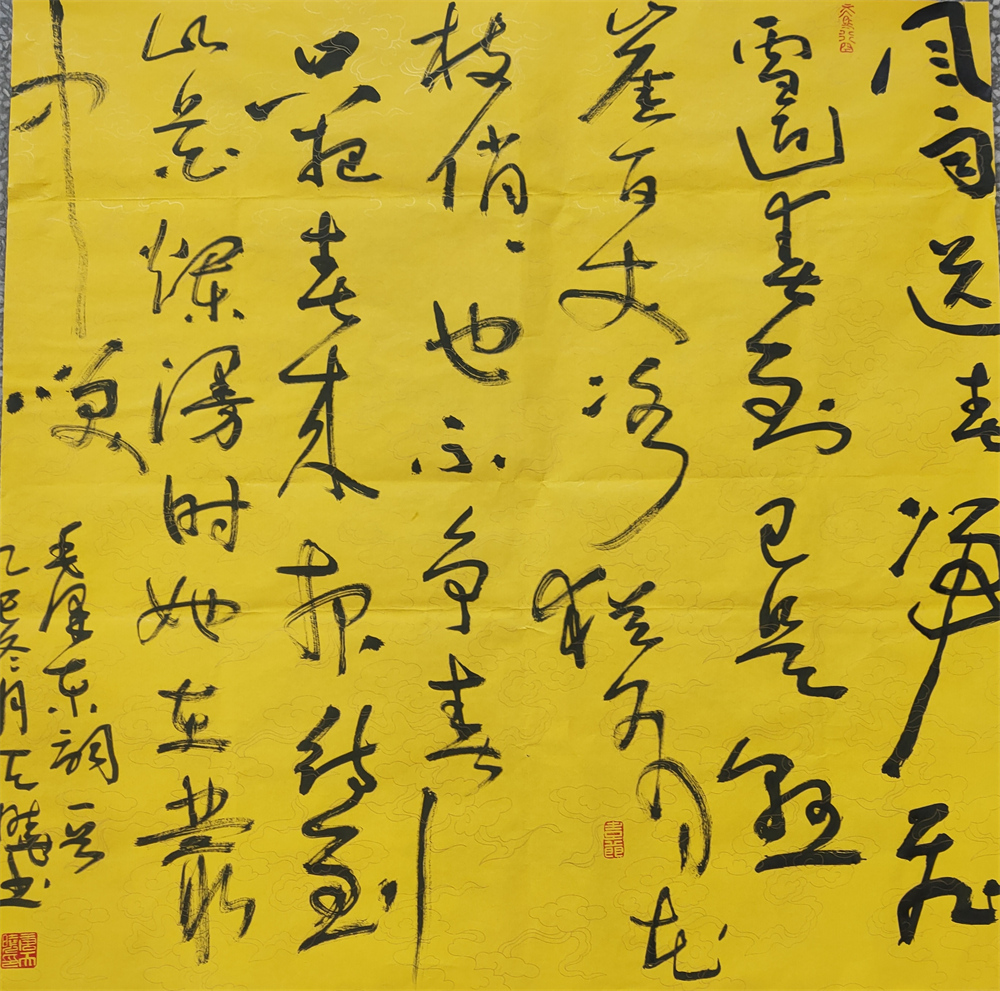 风雨送春归飞
雪迎春到已是悬
崖百丈冰犹有花
枝俏、也不争春
只把春来报待到
山花爛漫时她在叢
中笑
毛泽东词一首
乙巳冬月天晓书